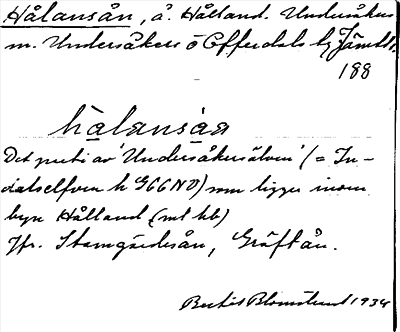 Hålansån, å. Hålland. Undersåkers
m. Undersåkers o Offerdals tg Jämtl.
188
hålansåa
Det parti av 'Undersåkersälven' (= In-
dalselfven h G66NO) som ligger inom
byn Hålland (mt hb)
Jfr. Stamgärdesån, Gräftån.
Bertil Blomstrand 1934